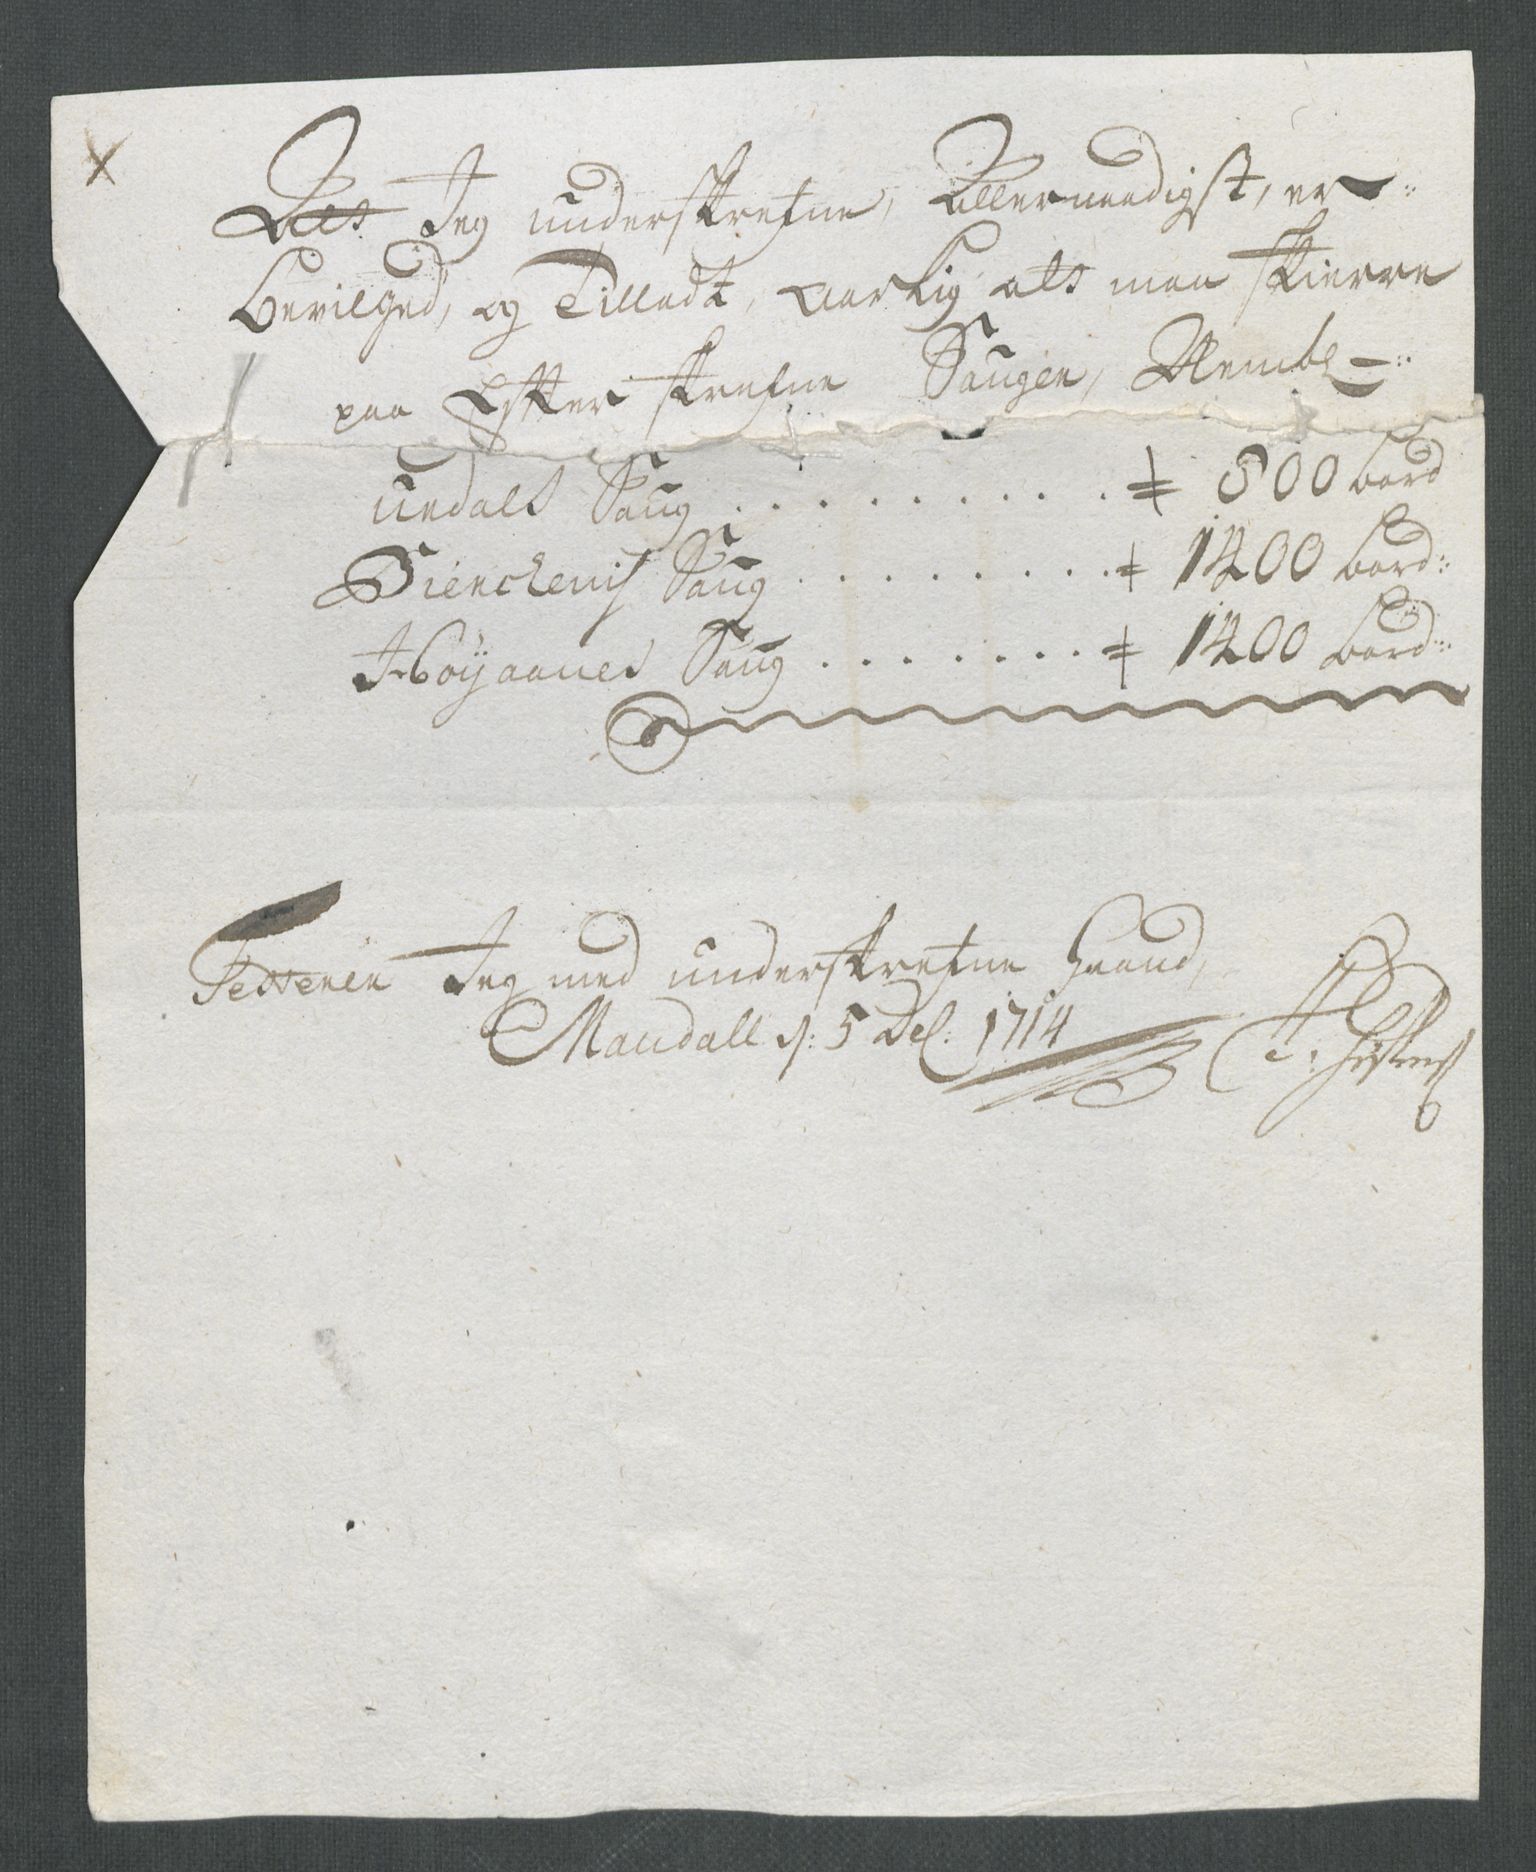 Als Jeg underskrefne, Allernaadigst, er-
bevilged, og Tilladt, Aarlig als maa skierre
paa Efter skrefne Sauger, Nembl=
Uedals Saug . . . . . . . . . . 800 bord
Bienckenis Saug . . . . . . . . . 1400 bord::
Høÿaanes Saug . . . . . . . . 1400 bord::
Testerer Jeg med underskrefne Haand,
Mandall d: 5 Dec: 1714